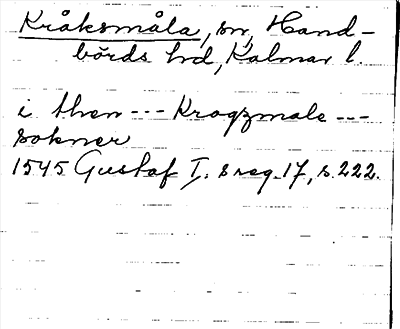 Kråksmåla, sn, Hand-
börds hd, Kalmar l.
i then --- Kragzmale ---
sokner
1545 Gustaf I. s reg. 17, s. 222.